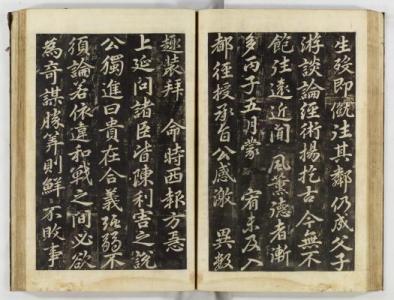 生發即僦注其鄰仍成父子
游談論經術揚扢古今無不
飽法遠近聞風薰德者漸
多丙子五月蒙　宥未及入
都徑授承旨公感激　異數
趣裝拜　命時西報方急
上延問諸臣皆陳利害之說
公獨進曰貴在合義强弱不
須論若依違和戰之間必欲
為奇謀勝筭則鮮不敗事